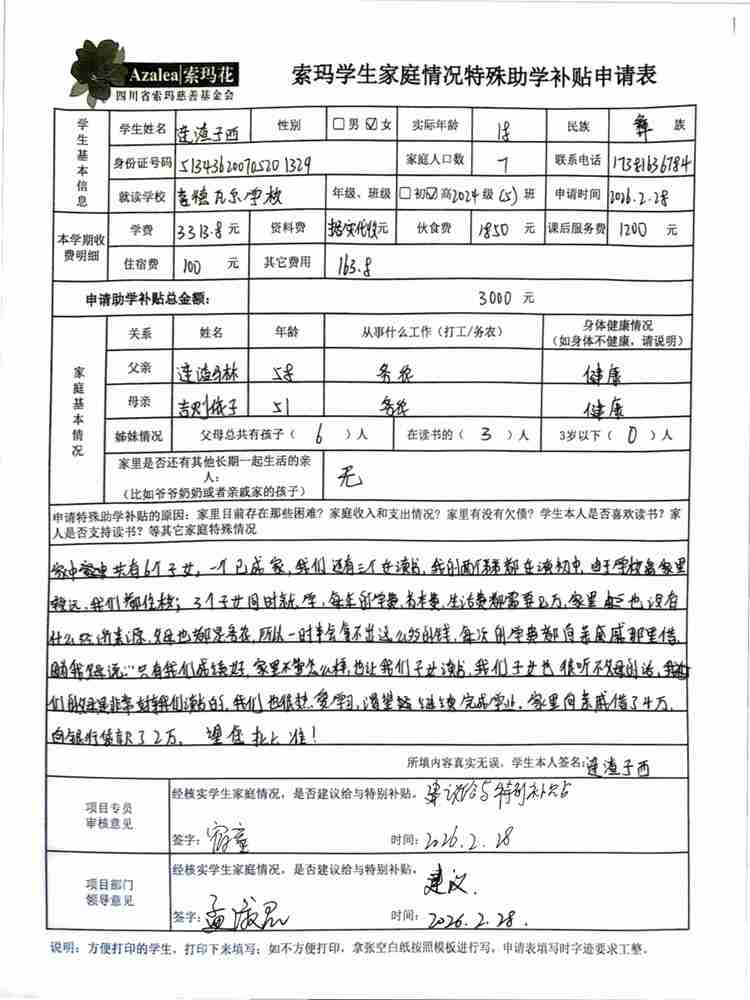 Azalea|索玛花
四川省索玛慈善基金会
索玛学生家庭情况特殊助学补贴申请表
学生基本信息
学生姓名 连渣子西 性别 □男 ☑女 实际年龄 18 民族 彝 族
身份证号码 513436200705201329 家庭人口数 7 联系电话 17381636784
就读学校 瓦尔学校 年级、班级 □初☑高2024级(5)班 申请时间 2026.2.28
本学期收费明细
学费 3313.8 元 资料费 据实代收元 伙食费 1850 元 课后服务费 1200 元
住宿费 100 元 其它费用 163.8
申请助学补贴总金额: 3000 元
家庭基本情况
关系 姓名 年龄 从事什么工作(打工/务农) 身体健康情况(如身体不健康,请说明)
父亲 连渣 林 58 务农 健康
母亲 吉则依子 51 务农 健康
姊妹情况 父母总共有孩子( 6 )人 在读书的( 3 )人 3岁以下( 0 )人
家里是否还有其他长期一起生活的亲人:
(比如爷爷奶奶或者亲戚家的孩子) 无
申请特殊助学补贴的原因:家里目前存在那些困难?家庭收入和支出情况?家里有没有欠债?学生本人是否喜欢读书?家
人是否支持读书?等其它家庭特殊情况
家中 共有6个子女,一个已成家,我们还有三个在读书,我的两个 都在读初中,由于学校离家里
较远,我们都住校;3个子女同时就学,每年的学费,书本费,生活费都需要2万,家里 也没有
什么经济来源,父母也都是务农,所以一时半会拿不出这么多的钱,每次的学费都向亲戚那里借,
父母说:"只有我们成绩好,家里不管怎么样,也让我们子女读书,我们子女也很听父母的话,
们 是非常支持我们读书的,我们也很热爱学习,渴望能继续完成学业,家里向亲戚借了4万,
向银行贷款了2万。望您批准!
所填内容真实无误,学生本人签名:连渣子西
项目专员审核意见
经核实学生家庭情况,是否建议给与特别补贴。建议给与特别补贴
签字: 时间:2026.2.28
项目部门领导意见
经核实学生家庭情况,是否建议给与特别补贴。建议.
签字: 时间:2026.2.28.
说明:方便打印的学生,打印下来填写;如不方便打印,拿张空白纸按照模板进行写,申请表填写时字迹要求工整。